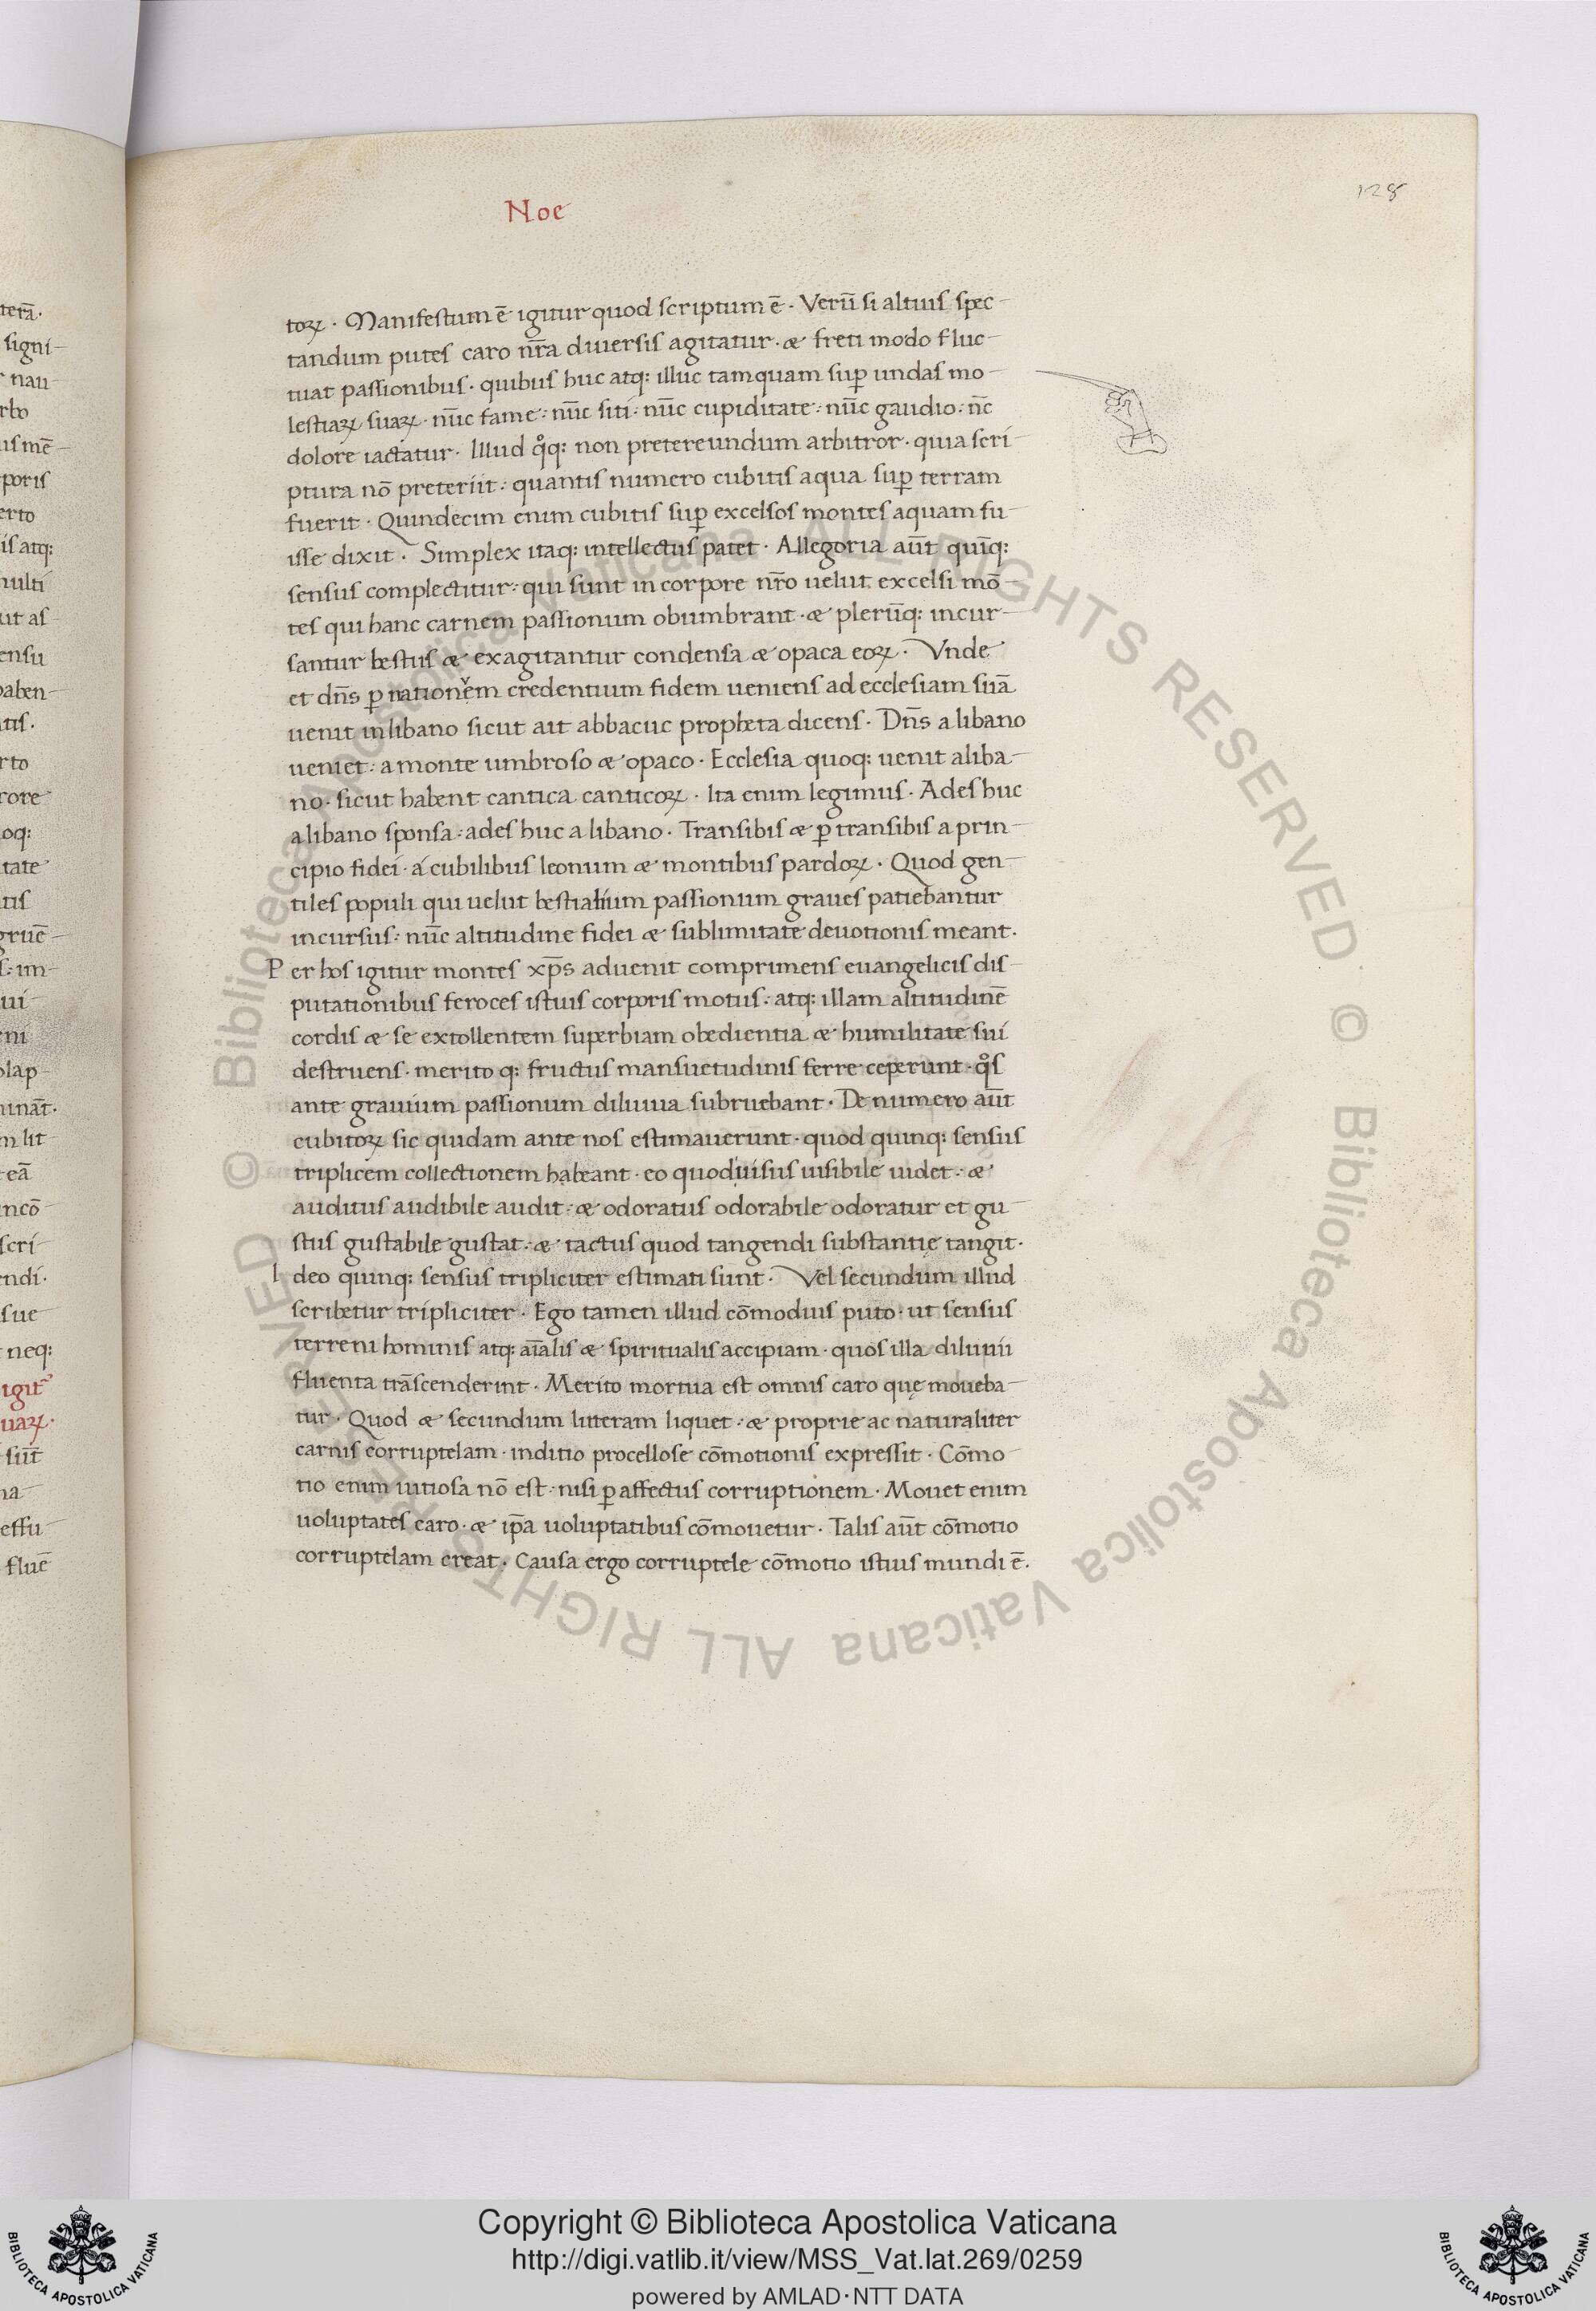 Noe
128
toꝝ · Manifestum ē igitur quod scriptum ē · Verū si altius spec-
tandum putes caro nr̄a diuersis agitatur · & freti modo fluc-
tuat passionibus · quibus huc atq: illuc tamquam suꝑ undas mo-
lestiaꝝ suaꝝ · nūc fame : nūc siti : nūc cupiditate : nūc gaudio : nc̄
dolore iactatur · Illud qͦq: non pretereundum arbitror · quia scri-
ptura nō preteriit : quantis numero cubitis aqua suꝑ terram
fuerit · Quindecim enim cubitis suꝑ excelsos montes aquam fu-
isse dixit · Simplex itaq: intellectus patet · Allegoria aūt quīq:
sensus complectitur : qui sunt in corpore nr̄o uelut excelsi mō-
tes qui hanc carnem passionum obumbrant · & plerūq: incur-
santur bestiis & exagitantur condensa & opaca eoꝝ · Vnde
et dn̄s ꝑ nationem credentium fidem ueniens ad ecclesiam suā
uenit in libano sicut ait abbacuc propheta dicens · Dn̄s a libano
ueniet : a monte umbroso & opaco · Ecclesia quoq: uenit a liba-
no · sicut habent cantica canticoꝝ · Ita enim legimus · Ades huc
a libano sponsa : ades huc a libano · Transibis & ꝑtransibis a prin-
cipio fidei · a cubilibus leonum & montibus pardoꝝ · Quod gen-
tiles populi qui uelut bestialium passionum graues patiebantur
incursus : nūc altitudine fidei & sublimitate deuotionis meant ·
Per hos igitur montes xp̄s aduenit comprimens euangelicis dis-
putationibus feroces istius corporis motus : atq: illam altitudinē
cordis & se extollentem superbiam obedientia & humilitate sui
destruens · merito q: fructus mansuetudinis ferre ceperunt · qͦs
ante grauium passionum diluuia subruebant · De numero aūt
cubitoꝝ sic quidam ante nos estimauerunt · quod quinq: sensus
triplicem collectionem habeant · eo quod uisus uisibile uidet : &
auditus audibile audit : & odoratus odorabile odoratur et gu-
stus gustabile gustat : & tactus quod tangendi substantię tangit ·
Ideo quinq: sensus tripliciter estimati sunt · Vel secundum illud
scribetur tripliciter · Ego tamen illud cōmodius puto · ut sensus
terreni hominis atq: aīalis & spiritualis accipiam · quos illa diluuii
fluenta trāscenderint · Merito mortua est omnis caro quę moueba-
tur · Quod & secundum litteram liquet : & proprie ac naturaliter
carnis corruptelam · inditio procellose cōmotionis expressit · Cōmo-
tio enim uitiosa nō est : nisi ꝑ affectus corruptionem · Mouet enim
uoluptates caro · & ip̄a uoluptatibus cōmouetur · Talis aūt cōmotio
corruptelam creat · Causa ergo corruptele cōmotio istius mundi ē ·
terā ·
signi-
nau-
rbo
us mē-
poris
erto
is atq:
multi
ut as-
ensu
haben-
rto
rore
oq:
tate
tis
gruē-
s : im-
ui-
eni
olap-
mināt ·
m lit-
eā
incō-
scri-
endi ·
sue
neq:
igit̄
uaꝝ ·
sūt
na-
effu-
fluē-
© Biblioteca Apostolica Vaticana ALL RIGHTS RESERVED © Biblioteca Apostolica Vaticana ALL RIGHTS RESERVED
Copyright © Biblioteca Apostolica Vaticana
http://digi.vatlib.it/view/MSS_Vat.lat.269/0259
powered by AMLAD·NTT DATA
BIBLIOTECA APOSTOLICA VATICANA
BIBLIOTECA APOSTOLICA VATICANA